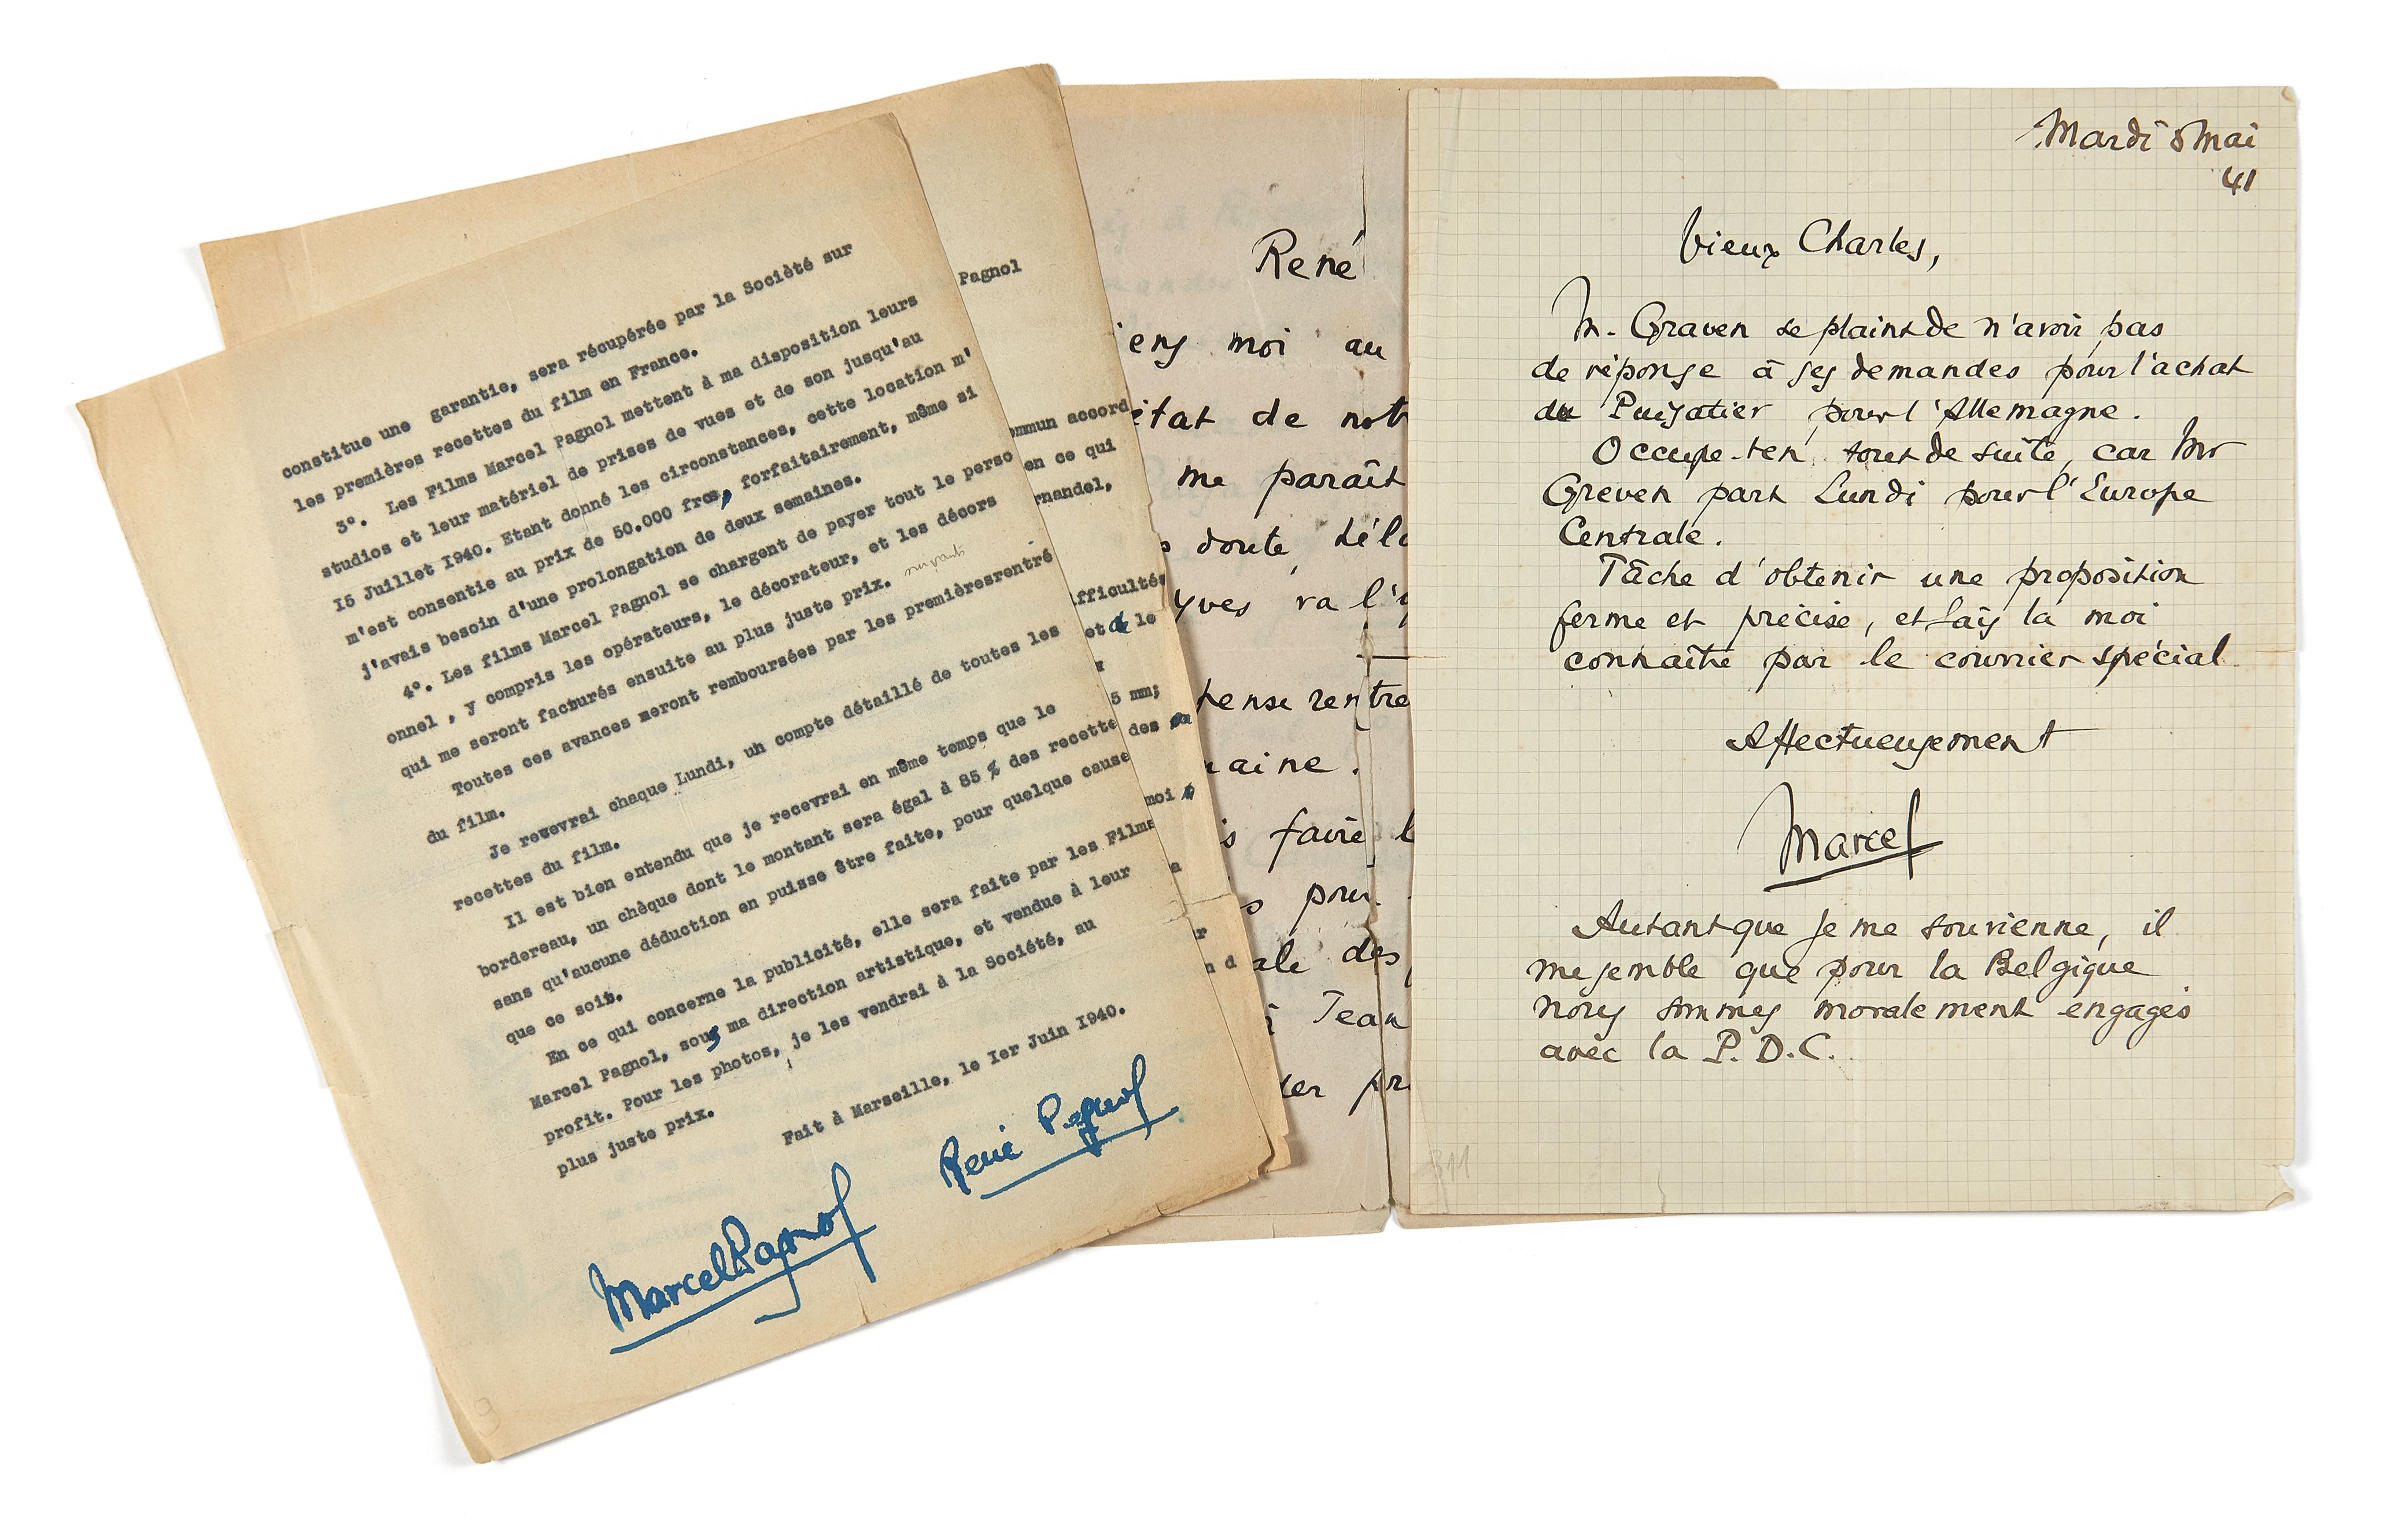 constitue une garantie, sera récupérée par la Société sur
les premières recettes du film en France.
3°. Les Films Marcel Pagnol mettent à ma disposition leurs
studios et leur matériel de prises de vues et de son jusqu'au
15 Juillet 1940. Etant donné les circonstances, cette location m'
m'est consentie au prix de 50.000 frcs, forfaitairement, même si
j'avais besoin d'une prolongation de deux semaines.
4°. Les films Marcel Pagnol se chargent de payer tout le perso
onnel , y compris les opérateurs, le décorateur, et les décors
qui me seront facturés ensuite au plus juste prix. suivants
Toutes ces avances seront remboursées par les premièresrentré
du film.
Je recevrai chaque Lundi, uh compte détaillé de toutes les
recettes du film.
Il est bien entendu que je recevrai en même temps que le
bordereau, un chèque dont le montant sera égal à 85 % des recette
sans qu'aucune déduction en puisse être faite, pour quelque cause
que ce soit.
En ce qui concerne la publicité, elle sera faite par les Films
Marcel Pagnol, sous ma direction artistique, et vendue à leur
profit. Pour les photos, je les vendrai à la Société, au
plus juste prix.
Fait à Marseille, le Ier Juin 1940.
Marcel Pagnol
René Pagnol
9
Pagnol
ommun accord
en ce qui
rnandel,
fficultés
et de le
5 mm;
des
moi
a
r
n d
René
iens moi au
état de not
me paraît
doute, déla
yves va l'
pense rentre
aine.
s faire l
s pour
ale des
à Jean
er pr
Mardi 8 Mai
41
Vieux Charles,
M. Graven se plaint de n'avoir pas
de réponse à ses demandes pour l'achat
du Puisatier pour l'Allemagne.
Occupe-t'en tout de suite, car Mr
Greven part Lundi pour l'Europe
Centrale.
Tâche d'obtenir une proposition
ferme et précise, et fais la moi
connaître par le courrier spécial.
Affectueusement
Marcel
Autant que je me souvienne, il
me semble que pour la Belgique
nous sommes moralement engagés
avec la P.D.C.
311